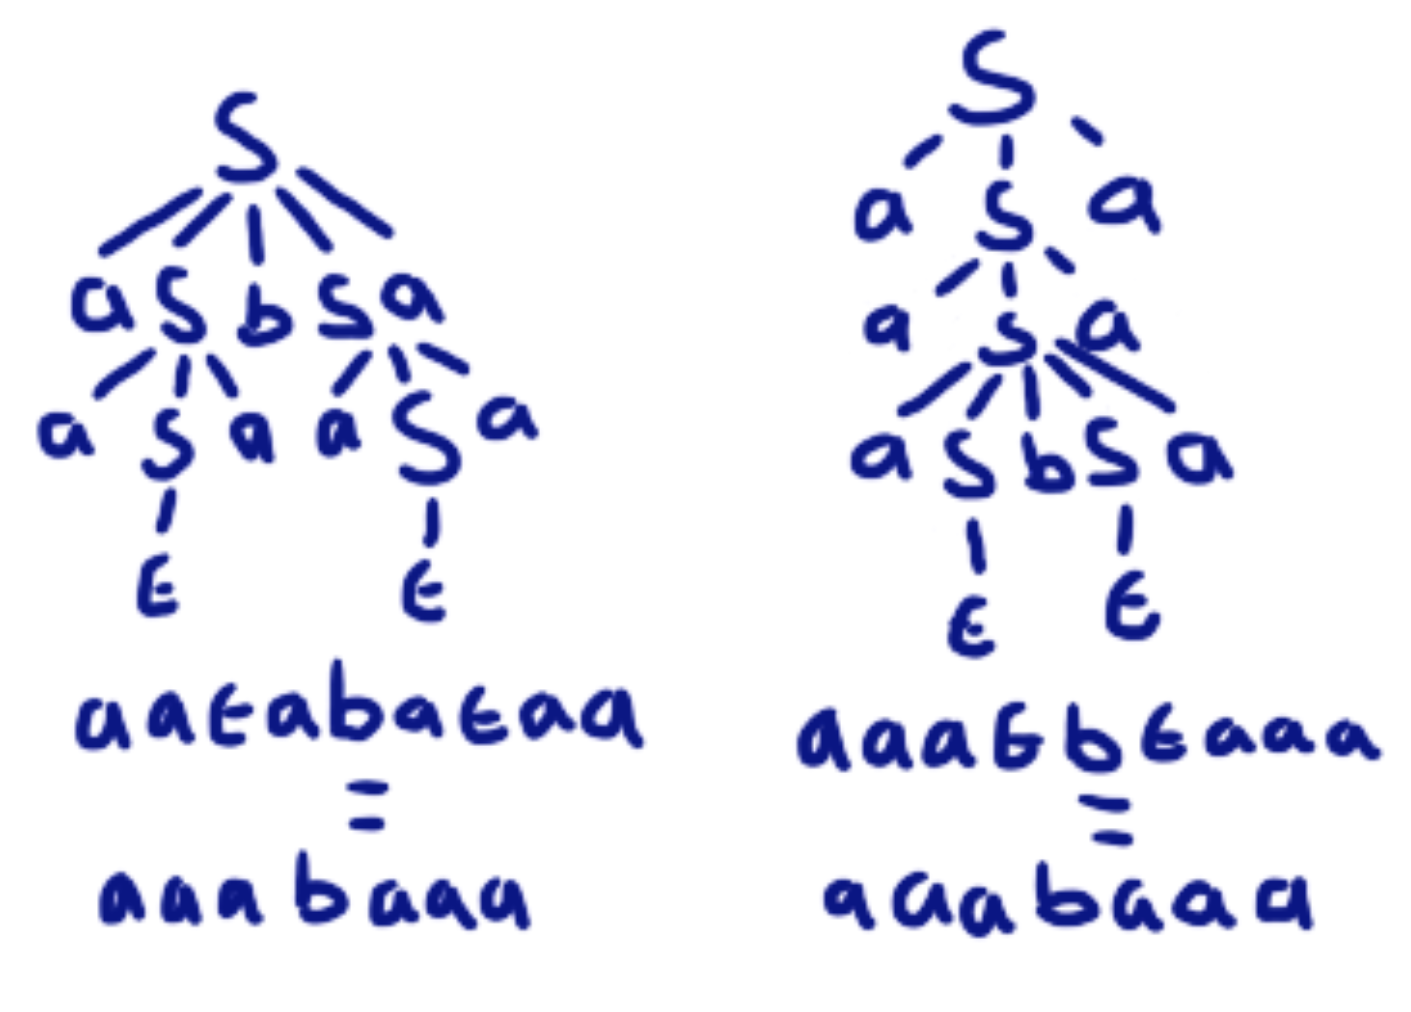 S
a S b S a
a S a a S a
ε ε
aaεabaεaa
=
aaabaaa
S
a S a
a S a
a S b S a
ε ε
aaaεbεaaa
=
aaabaaa